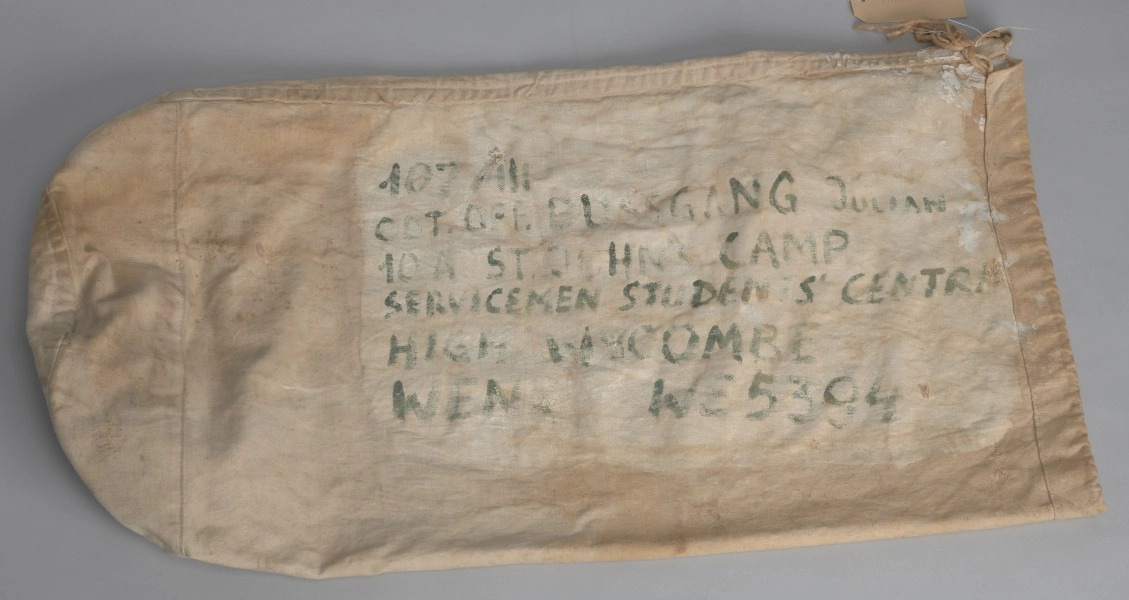 107 AH
CDT. BUSSGANG JULIAN
10A ST. JOHN'S CAMP
SERVICEMEN STUDENTS' CENTRE
HIGH WYCOMBE
WE 5394